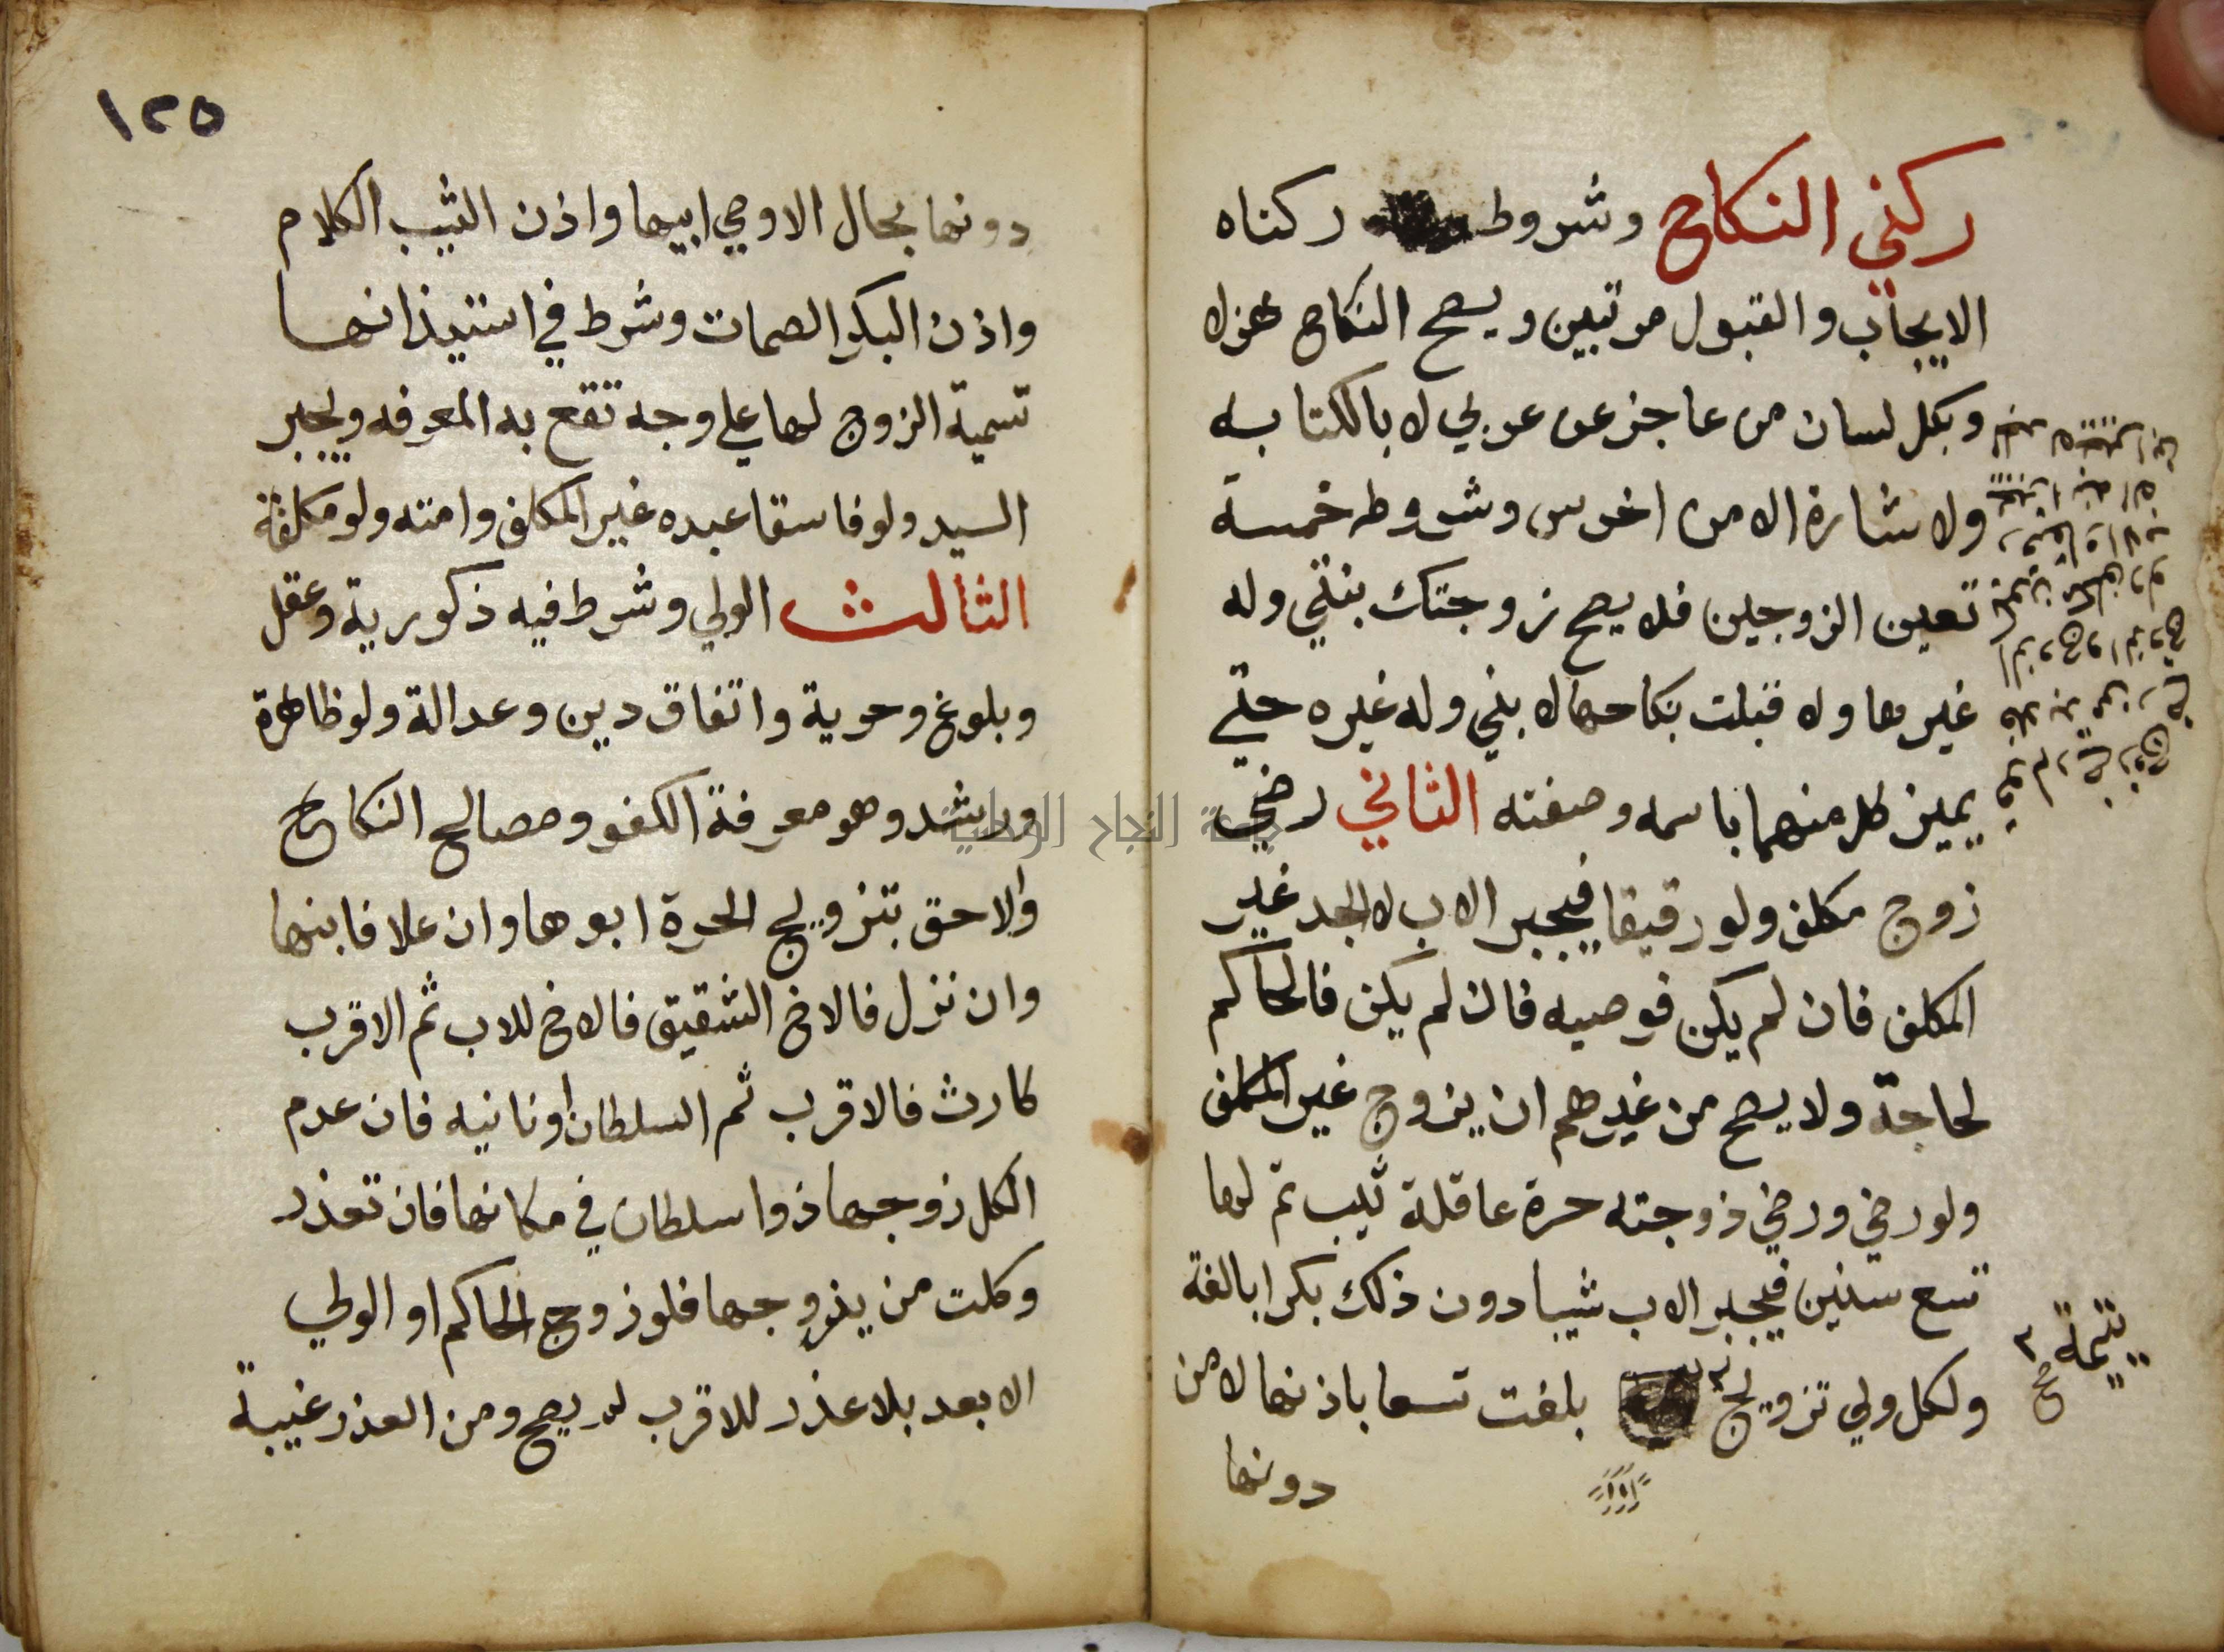 ركني النكاح وشروط ركناه
الايجاب والقبول مرتبين ويصح النكاح هزلا
وبكل لسان من عاجز عن عربي لا بالكتابه
ولا شارة الا من اخرس وشروطه خمسة
تعين الزوجين فلا يصح زوجتك بنتي وله
غيرها ولا قبلت نكاحها لابني وله غيره حتي
يميز كل منهما باسمه وصفته الثاني رضي
زوج مكلف ولو رقيقا فيجبر الاب لا الجد غير
المكلف فان لم يكن فوصيه فان لم يكن فالحاكم
لحاجة ولا يصح من غيرهم ان يزوج غير المكلف
ولو رضي ورضي زوجته حرة عاقلة ثيب تم لها
تسع سنين فيجبر الاب ثيبا دون ذلك بكرا بالغة
ولكل ولي تزويج يتيمة بلغت تسعا باذنها لا من
دونها
يتيمة ٣
صح
١٢٥
دونها بحال الا وصي ابيها واذن الثيب الكلام
واذن البكر الصمات وشرط في استيذانها
تسمية الزوج لها علي وجه تقع به المعرفه ويجبر
السيد ولو فاسقا عبده غير المكلف وامته ولو مكلفة
الثالث الولي وشرط فيه ذكورية وعقل
وبلوغ وحرية واتفاق دين وعدالة ولو ظاهرة
ورشد وهو معرفة الكفو ومصالح النكاح
والاحق بتزويج الحرة ابوها وان علا فابنها
وان نزل فالاخ الشقيق فالاخ للاب ثم الاقرب
كارث فالاقرب ثم السلطان او نائبه فان عدم
الكل زوجها ذوا سلطان في مكانها فان تعذر
وكلت من يزوجها فلو زوج الحاكم او الولي
الابعد بلا عذر للاقرب لم يصح ومن العذر غيبة
جامعة النجاح الوطنية